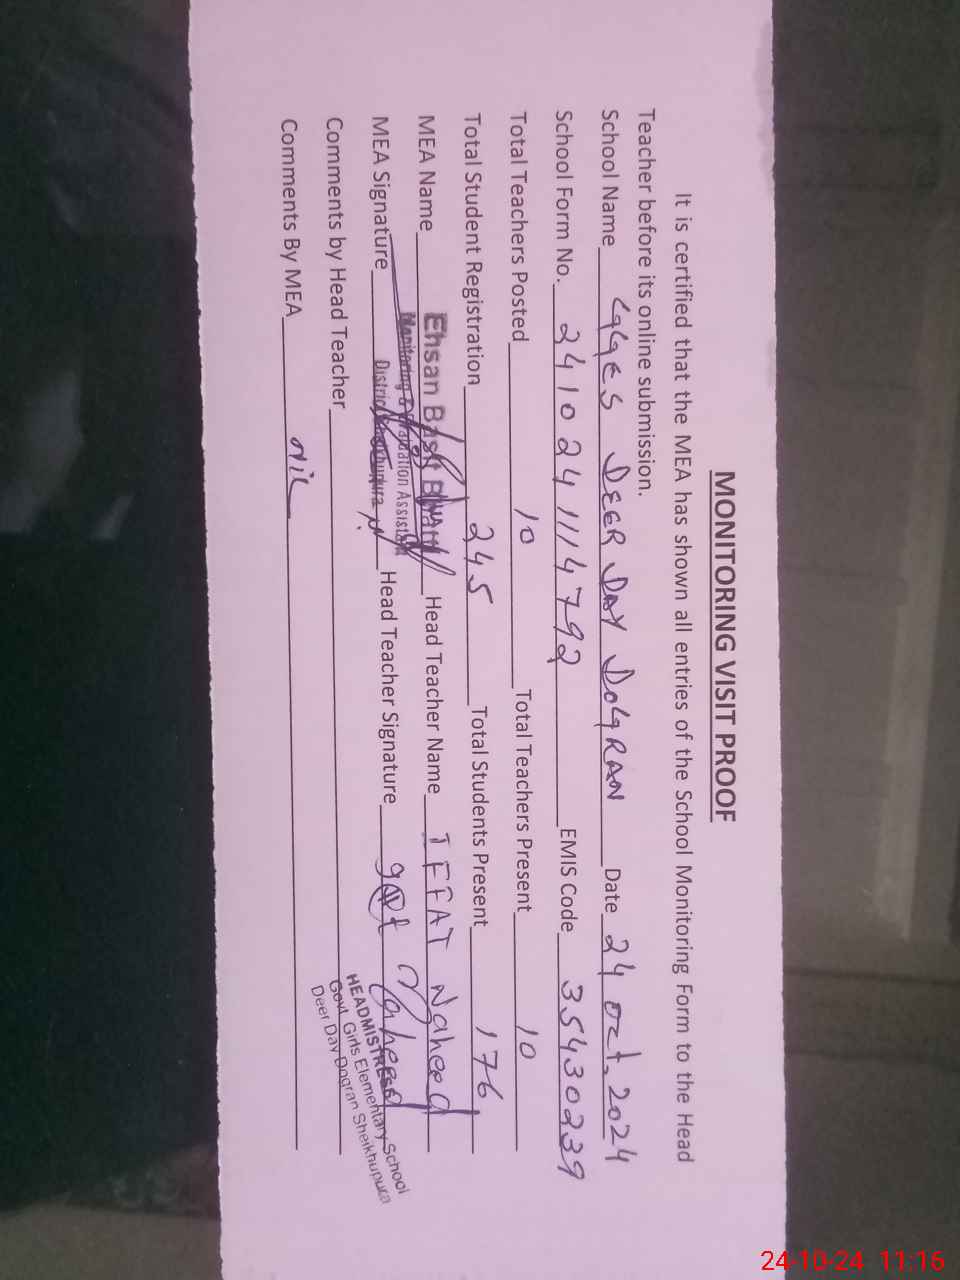 MONITORING VISIT PROOF
It is certified that the MEA has shown all entries of the School Monitoring Form to the Head
Teacher before its online submission.
School Name GGES DEER DAY DOGRAN Date 24 oct. 2024
School Form No. 2410241114792 EMIS Code 35430239
Total Teachers Posted 10 Total Teachers Present 10
Total Student Registration 245 Total Students Present 176
MEA Name Ehsan Basit Bhatti Head Teacher Name IFFAT Naheed
Monitoring & Evaluation Assistant
District Sheikhupura
MEA Signature Head Teacher Signature Naheed
HEADMISTRESS
Govt. Girls Elementary School
Deer Day Dogran Sheikhupura
Comments by Head Teacher
Comments By MEA Nil
24-10-24 11:16